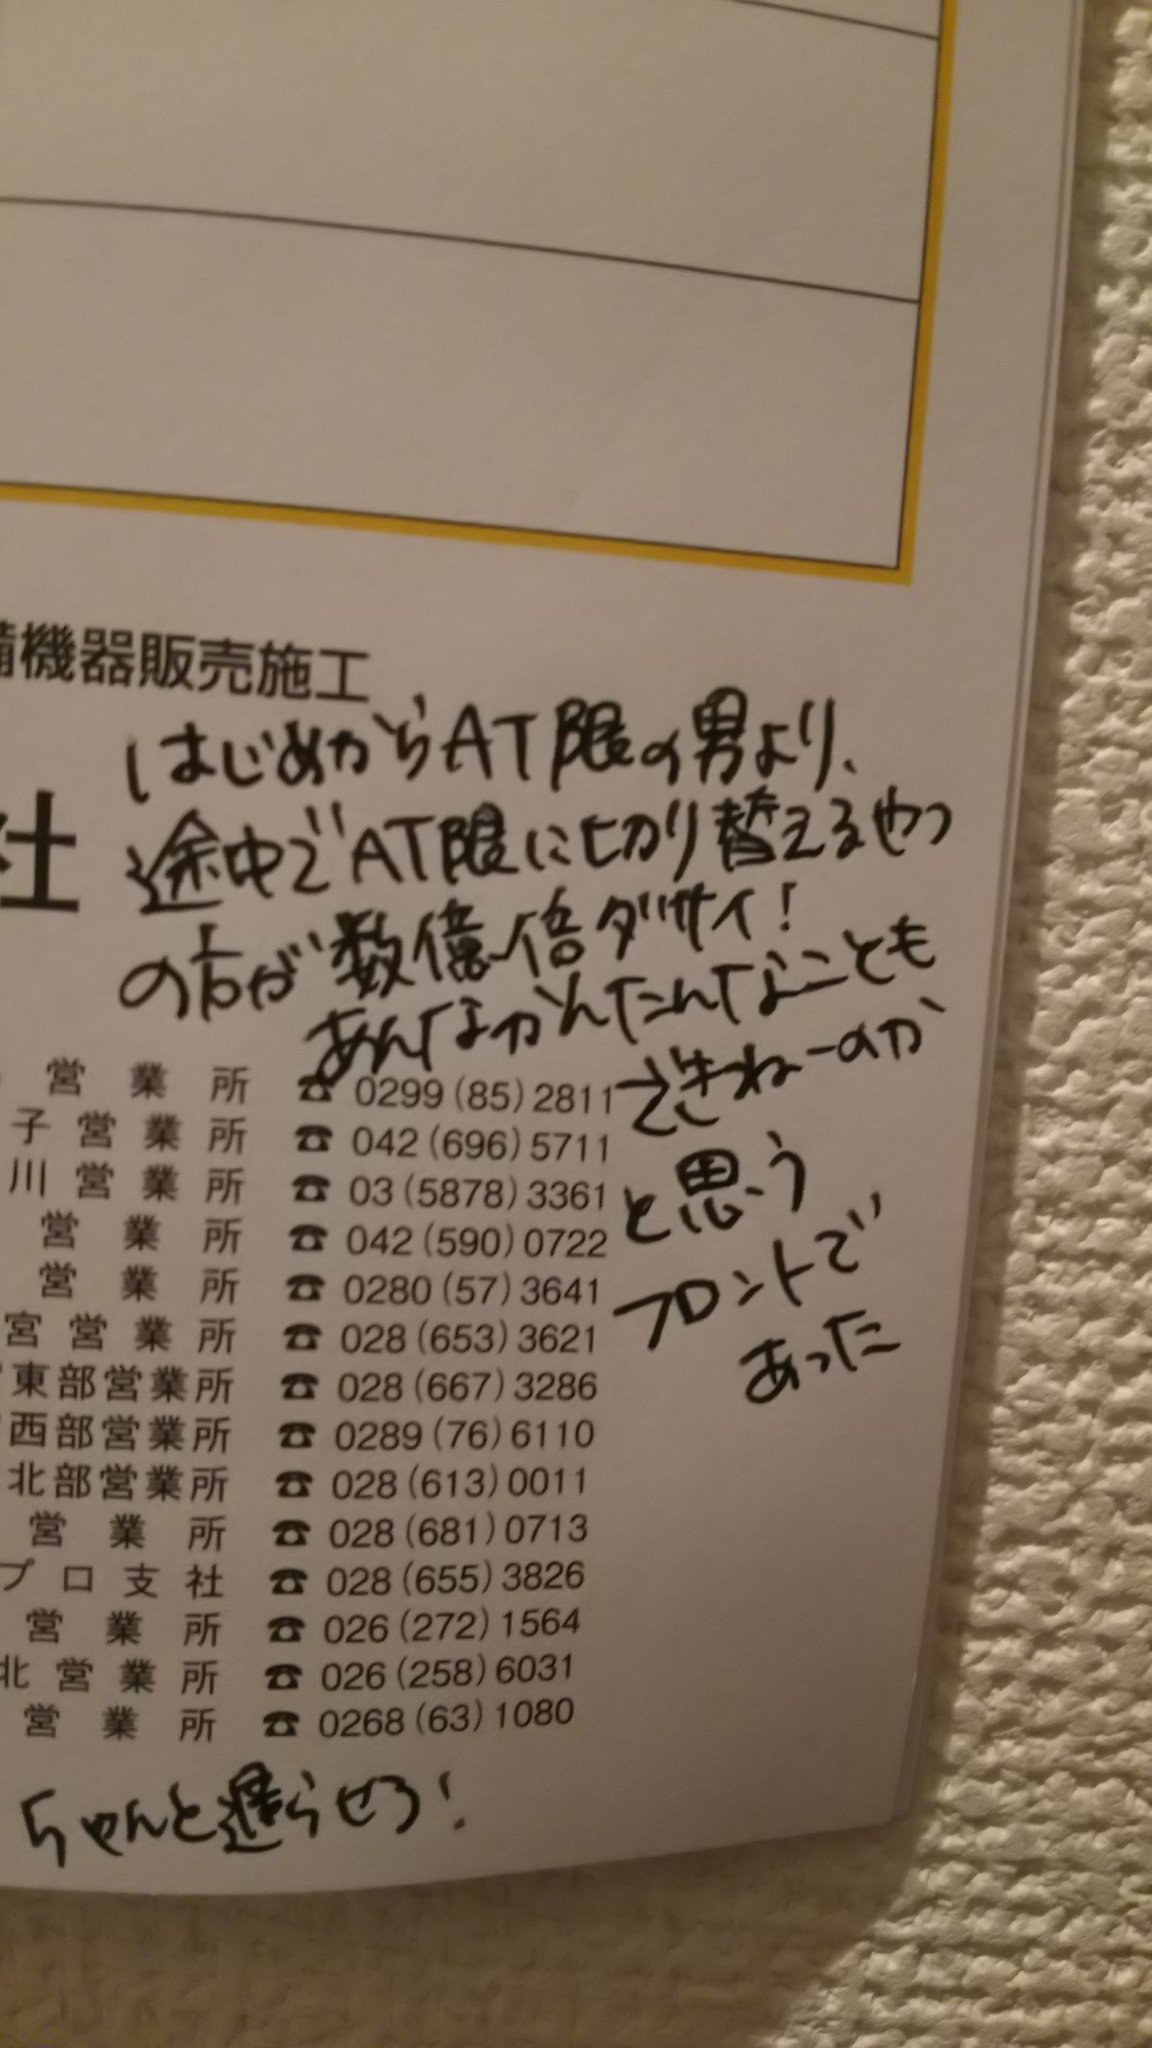 備機器販売施工
はじめからAT限の男より、
途中でAT限に切り替えるやつ
の方が数億倍ダサイ!
あんなかんたんなことも
できねーのか
と思う
フロントで
あった
社
営業所 ☎ 0299(85)2811
子営業所 ☎ 042(696)5711
川営業所 ☎ 03(5878)3361
営業所 ☎ 042(590)0722
営業所 ☎ 0280(57)3641
宮営業所 ☎ 028(653)3621
東部営業所 ☎ 028(667)3286
西部営業所 ☎ 0289(76)6110
北部営業所 ☎ 028(613)0011
営業所 ☎ 028(681)0713
プロ支社 ☎ 028(655)3826
営業所 ☎ 026(272)1564
北営業所 ☎ 026(258)6031
営業所 ☎ 0268(63)1080
ちゃんと遅らせろ!